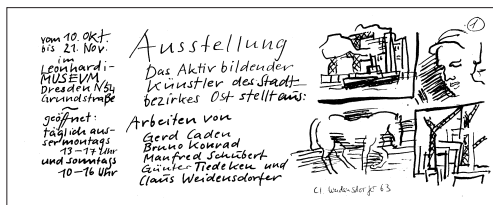 vom 10. Okt.
bis 21. Nov.
im
Leonhardi-
MUSEUM
Dresden N/54
Grundstraße
geöffnet:
täglich aus-
ser montags
13-17 Uhr
und sonntags
10-16 Uhr
Ausstellung
Das Aktiv bildender
Künstler des Stadt-
bezirkes Ost stellt aus:
Arbeiten von
Gerd Caden
Bruno Konrad
Manfred Schubert
Günter Tiedeken und
Claus Weidensdorfer
1
Cl Weidensdorfer 63